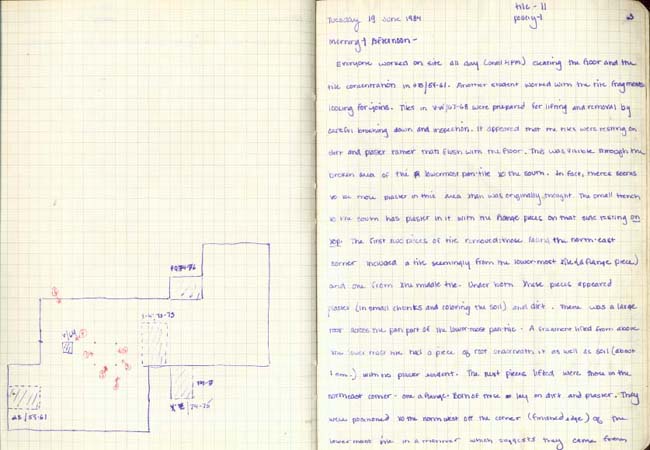 Tuesday 19 June 1984
tile-11
peony-1
Morning & Afternoon -
Everyone worked on site all day (until 4PM) clearing the floor and the
tile concentration in /59-61. Another student worked with the tile fragments
looking for joins. Tiles in V-W/67-68 were prepared for lifting and removal by
careful breaking down and inspection. It appeared that the tiles were resting on
dirt and plaster rather than flush with the floor. This was visible through the
broken area of the lowermost pan-tile to the south. In fact, there seems
to be more plaster in this area than was originally thought. The small trench
to the south has plaster in it with the flange pieces on that side resting on
top. The first two pieces of tile removed (those facing the north-east
corner included a tile seemingly from the lower-most tile (a flange piece)
and one from the middle tile. Under both these pieces appeared
plaster (in small chunks and coloring the soil) and dirt. There was a large
root across the pan part of the lower-most pan-tile. A fragment lifted from above
the lower most tile had a piece of root underneath it as well as soil (about
1 cm.) with no plaster evident. The next pieces lifted were those in the
northeast corner - one a flange. Both of these lay on dirt and plaster. They
were positioned to the northwest off the corner (finished edge) of the
lowermost tile in a manner which suggests they came from
/59-61
74-75